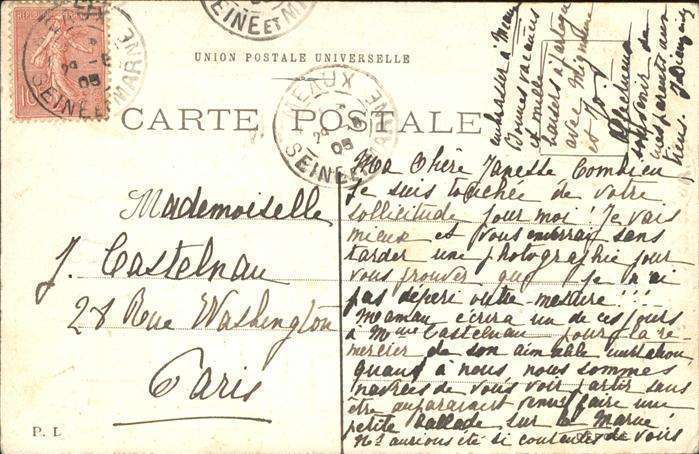 UNION POSTALE UNIVERSELLE
CARTE POSTALE
MEAUX
29 -8
05
SEINE ET MARNE
Mademoiselle
J. Castelnau
28 Rue Washington
Paris
P. L
Ma Chère Combien
je suis touchée de votre
sollicitude pour moi! Je vais
mieux et vous enverrai sans
tarder une photographie pour
vous prouver que je n'ai
pas déperi outre mesure!!!
Maman écrira un de ces jours
à Mme Castelnau pour la re-
mercier de son aimable invitation
quant à nous nous sommes
navrées de vous voir partir sans
être auparavant venus faire une
petite ballade sur la Marne!
Ns aurions été si contentes de vous
embrasser à Meaux
Bonnes vacances
et mille
baisers à partager
avec
et
Affectueux
souvenir de
mes parents aux
tiens.